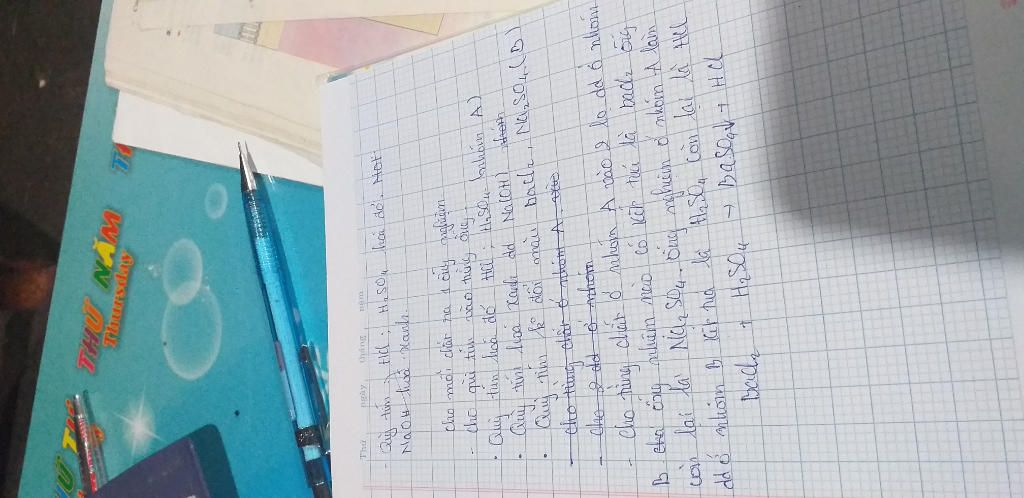 THỨ NĂM
Thursday
THỨ TƯ
Thứ ngày tháng năm
- Quỳ tím: HCl; H₂SO₄ hoá đỏ. NaOH
NaOH hoá xanh.
Cho mỗi chất ra 1 ống nghiệm
- Cho quì tím vào từng ống.
• Quỳ tím hoá đỏ HCl; H₂SO₄ (nhóm A)
• Quỳ tím hoá xanh dd NaOH)
• Quỳ tím ko đổi màu BaCl₂, Na₂SO₄ (B)
- Cho từng chất ở nhóm A vào
- Cho 2 dd ở nhóm
- Cho từng chất ở nhóm A vào 2 lọ dd ở nhóm
B ống nghiệm nào có kết tủa là BaCl₂ ống
còn lại là Na₂SO₄. Ống nghiệm ở nhóm A làm
dd ở nhóm B kết tủa là H₂SO₄ còn lại là HCl
BaCl₂ + H₂SO₄ → BaSO₄↓ + HCl